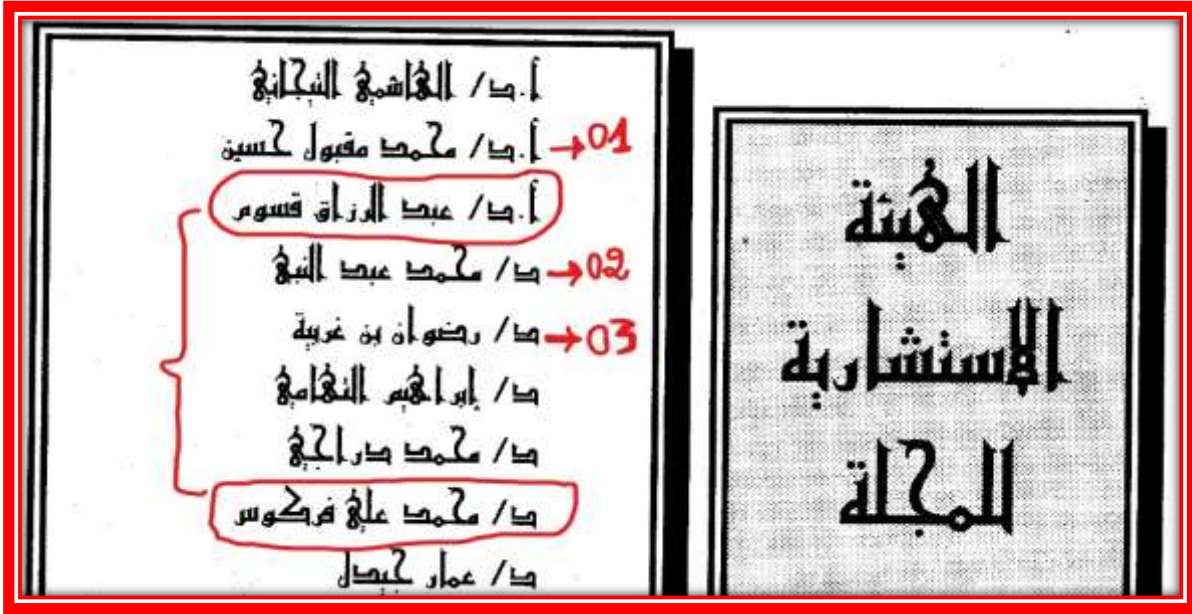 الهيئة
الإستشارية
للمجلة
أ.د/ الهاشمي التيجاني
أ.د/ محمد مقبول حسين
01
أ.د/ عبد الرزاق قسوم
د/ محمد عبد النبي
02
د/ رضوان بن غربية
03
د/ إبراهيم التهامي
د/ محمد دراجي
د/ محمد علي فركوس
د/ عمار جيدل